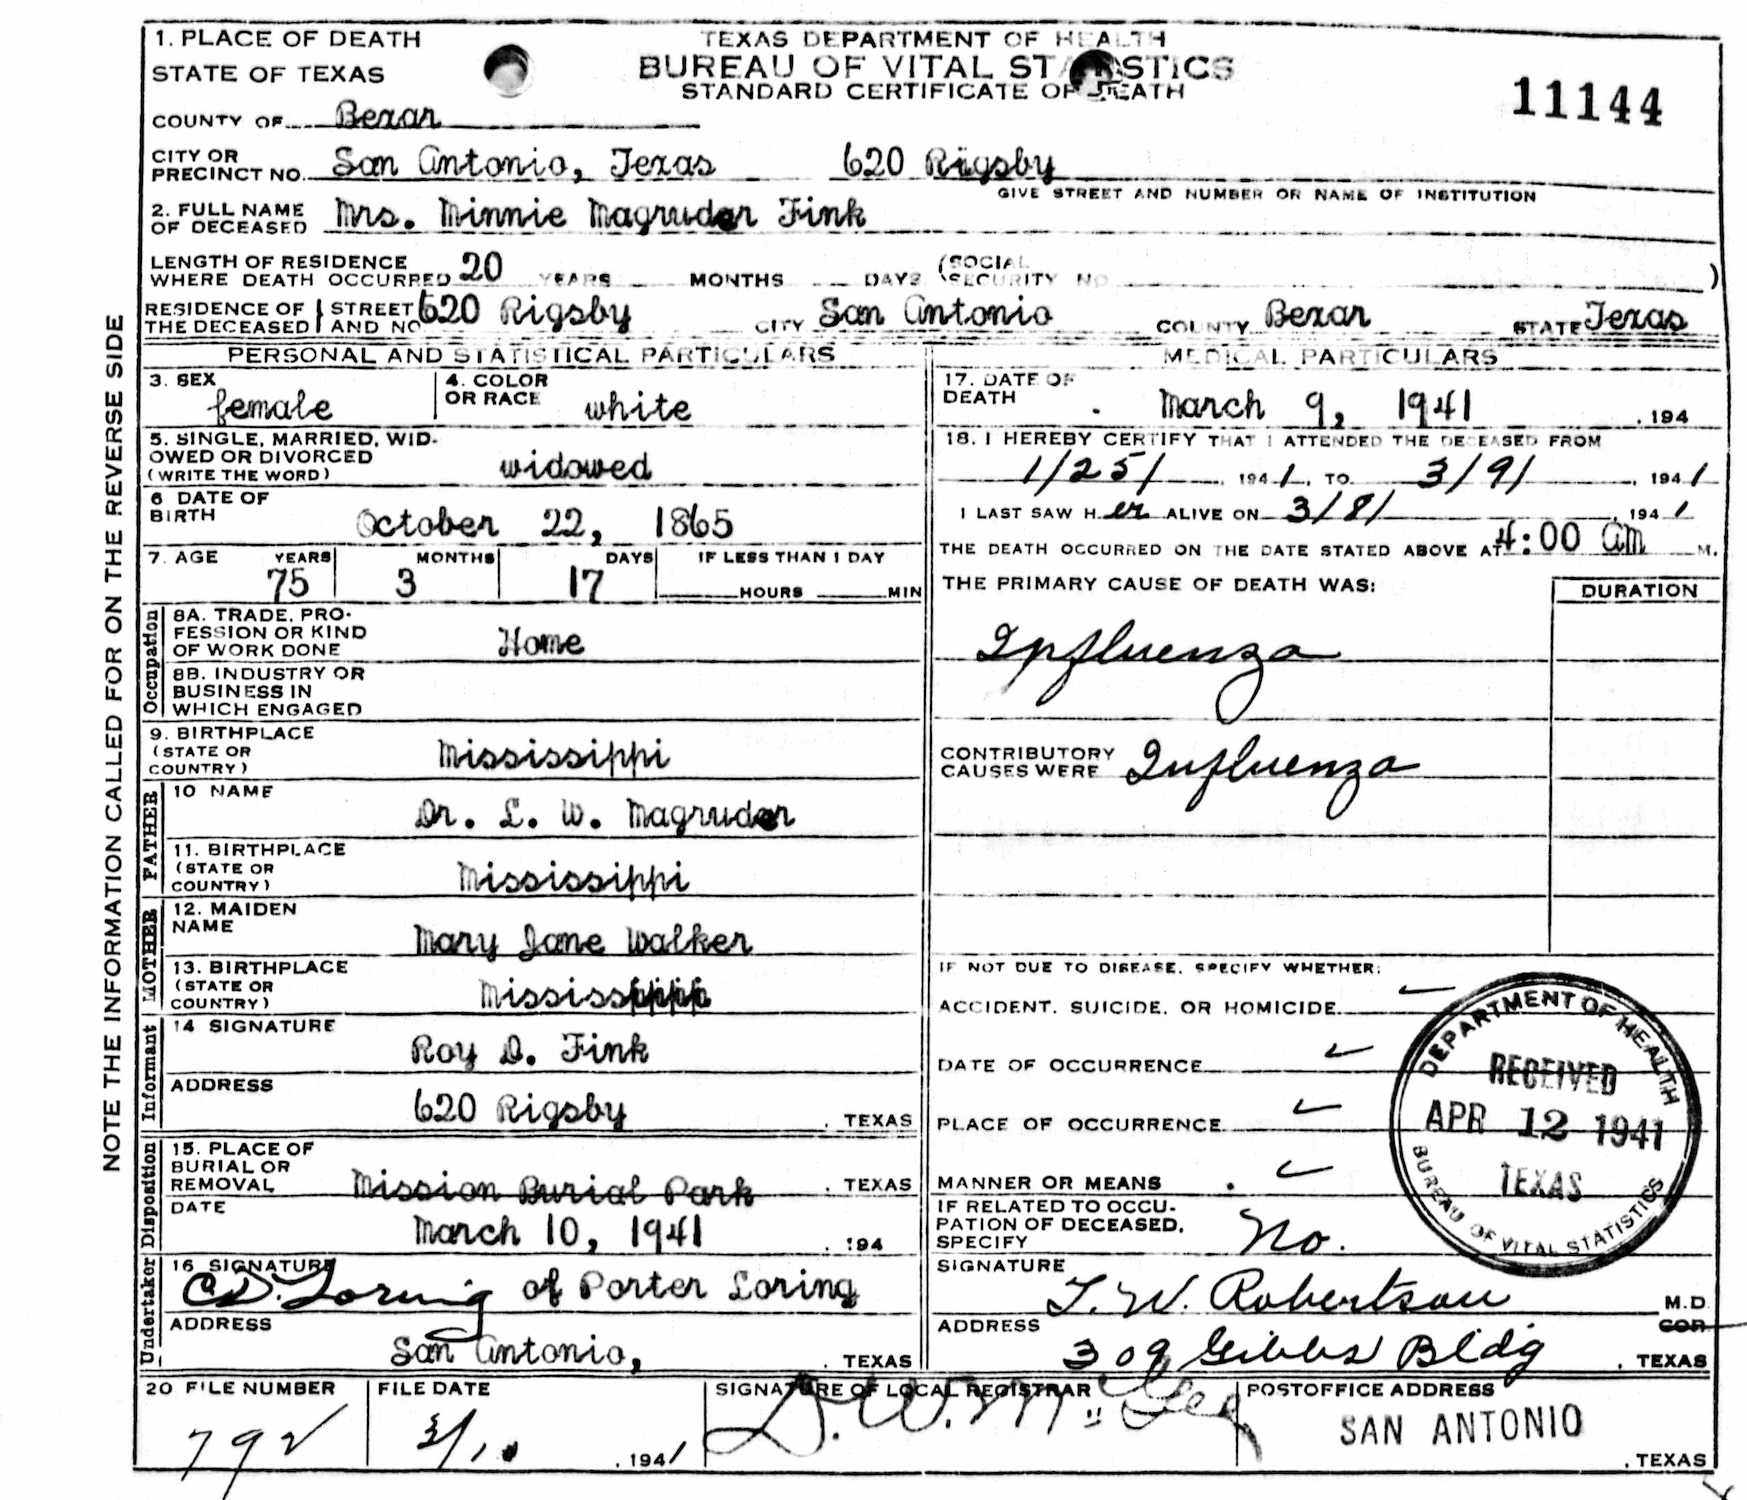 1. PLACE OF DEATH
STATE OF TEXAS
TEXAS DEPARTMENT OF HEALTH
BUREAU OF VITAL STATISTICS
STANDARD CERTIFICATE OF DEATH
11144
COUNTY OF Bexar
CITY OR PRECINCT NO. San Antonio, Texas 620 Rigsby
GIVE STREET AND NUMBER OR NAME OF INSTITUTION
2. FULL NAME OF DECEASED Mrs. Minnie Magruder Fink
LENGTH OF RESIDENCE WHERE DEATH OCCURRED 20 YEARS MONTHS DAYS (SOCIAL SECURITY NO. )
RESIDENCE OF THE DECEASED STREET AND NO 620 Rigsby CITY San Antonio COUNTY Bexar STATE Texas
NOTE THE INFORMATION CALLED FOR ON THE REVERSE SIDE
PERSONAL AND STATISTICAL PARTICULARS
3. SEX female 4. COLOR OR RACE white
5. SINGLE, MARRIED, WIDOWED OR DIVORCED (WRITE THE WORD) widowed
6 DATE OF BIRTH October 22, 1865
7. AGE YEARS 75 MONTHS 3 DAYS 17 IF LESS THAN 1 DAY HOURS MIN
Occupation
8A. TRADE, PROFESSION OR KIND OF WORK DONE Home
8B. INDUSTRY OR BUSINESS IN WHICH ENGAGED
9. BIRTHPLACE (STATE OR COUNTRY) Mississippi
FATHER
10 NAME Dr. L. W. Magruder
11. BIRTHPLACE (STATE OR COUNTRY) Mississippi
MOTHER
12. MAIDEN NAME Mary Jane Walker
13. BIRTHPLACE (STATE OR COUNTRY) Mississippi
Informant
14 SIGNATURE Roy D. Fink
ADDRESS 620 Rigsby , TEXAS
Disposition
15. PLACE OF BURIAL OR REMOVAL Mission Burial Park , TEXAS
DATE March 10, 1941 , 194
Undertaker
16 SIGNATURE C.D. Loring of Porter Loring
ADDRESS San Antonio, , TEXAS
MEDICAL PARTICULARS
17. DATE OF DEATH March 9, 1941 , 194
18. I HEREBY CERTIFY THAT I ATTENDED THE DECEASED FROM
1/25/ , 1941, TO 3/9/ , 1941
I LAST SAW Her ALIVE ON 3/8/ , 1941
THE DEATH OCCURRED ON THE DATE STATED ABOVE AT 4:00 am M.
THE PRIMARY CAUSE OF DEATH WAS: DURATION
Influenza
CONTRIBUTORY CAUSES WERE Influenza
IF NOT DUE TO DISEASE, SPECIFY WHETHER:
ACCIDENT, SUICIDE, OR HOMICIDE
DATE OF OCCURRENCE
PLACE OF OCCURRENCE
MANNER OR MEANS
IF RELATED TO OCCUPATION OF DECEASED, SPECIFY No.
DEPARTMENT OF HEALTH
RECEIVED
APR 12 1941
TEXAS
BUREAU OF VITAL STATISTICS
SIGNATURE T. W. Robertson M.D.
COR
ADDRESS 309 Gibbs Bldg , TEXAS
20 FILE NUMBER 792
FILE DATE 3/10 , 1941
SIGNATURE OF LOCAL REGISTRAR
POSTOFFICE ADDRESS
SAN ANTONIO
, TEXAS